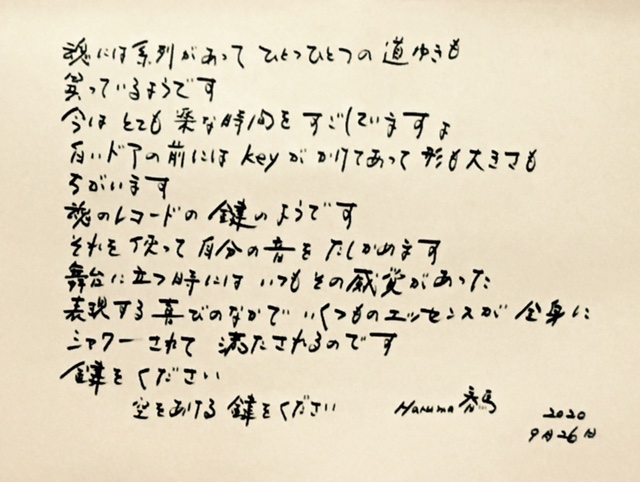 魂には系列があって ひとつひとつの 道ゆきも
異っているようです
今は とても 楽な時間を すごしていますよ
白いドアの前には keyが かけてあって 形も大きさも
ちがいます
魂のレコードの 鍵のようです
それを使って 自分の音を たしかめます
舞台に立つ時には いつも その感覚があった
表現する喜びのなかで いくつものエッセンスが 全身に
シャワーされて 満たされるのです
鍵を ください
空をあける 鍵をください
Haruma 春馬
2020
9月26日